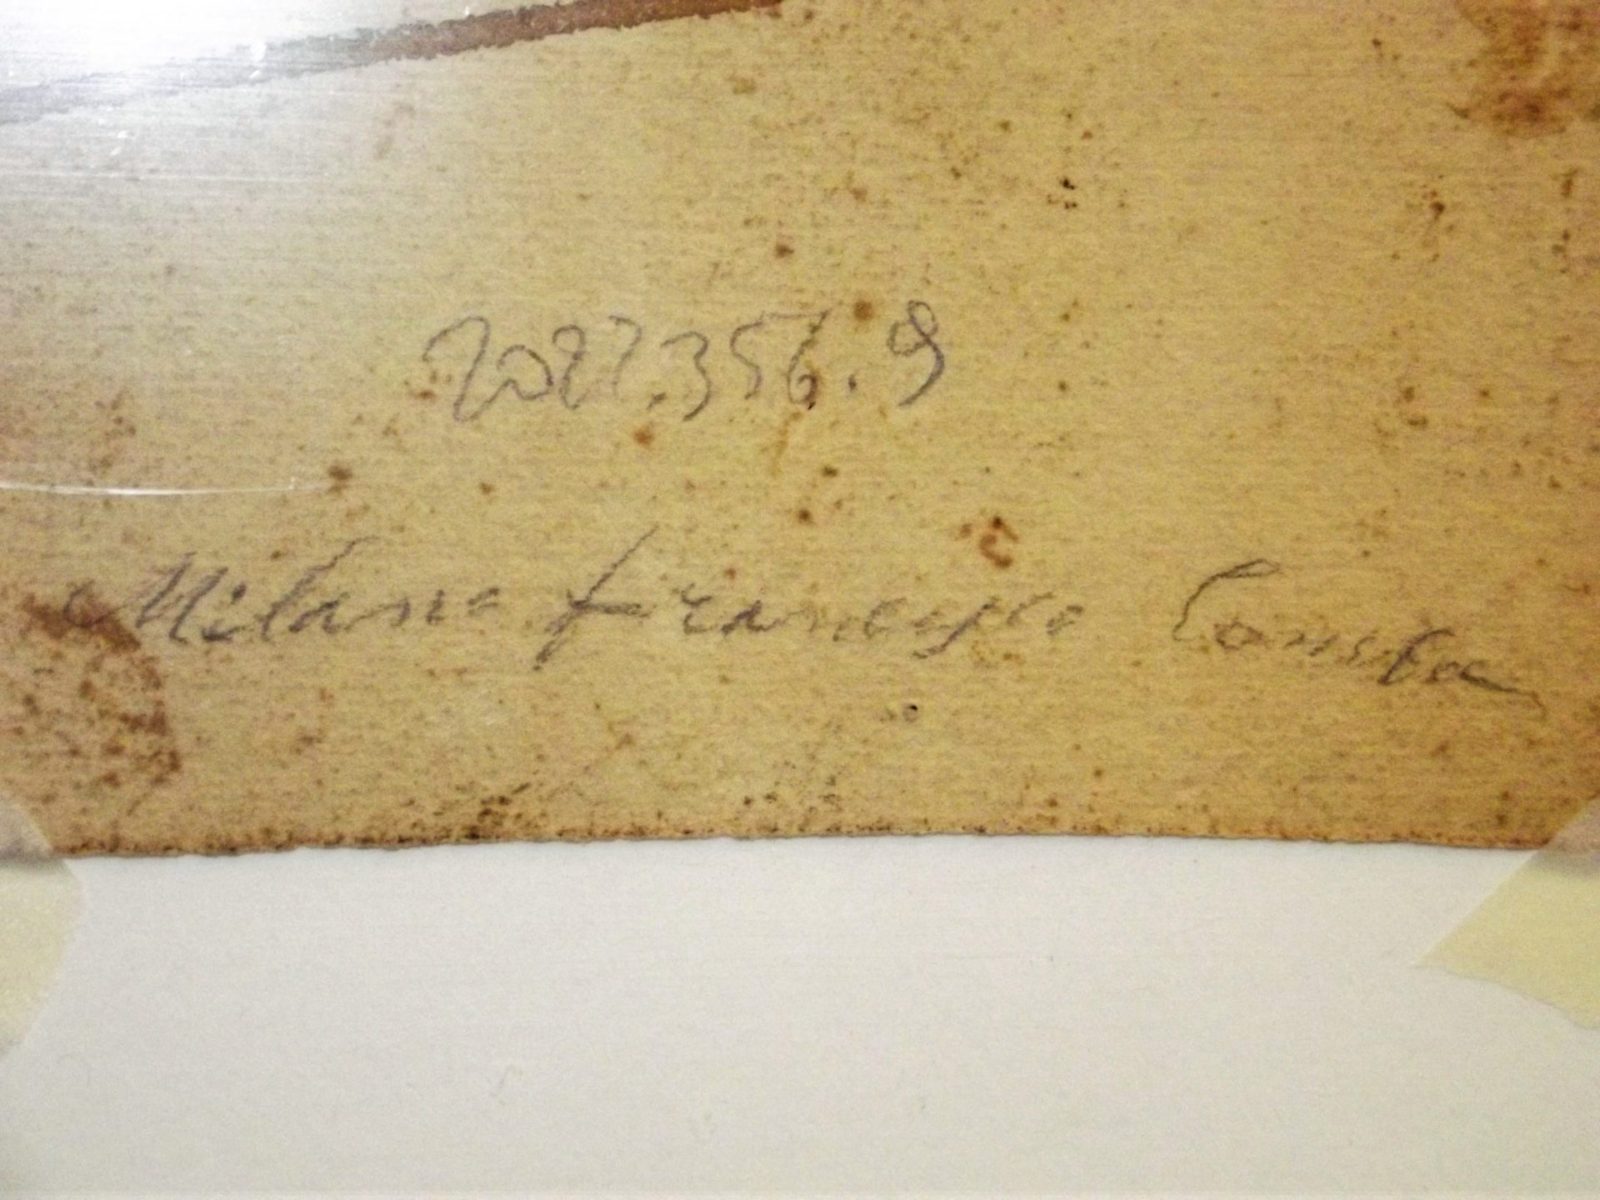 2022.356.9
Milano Francesco Consta